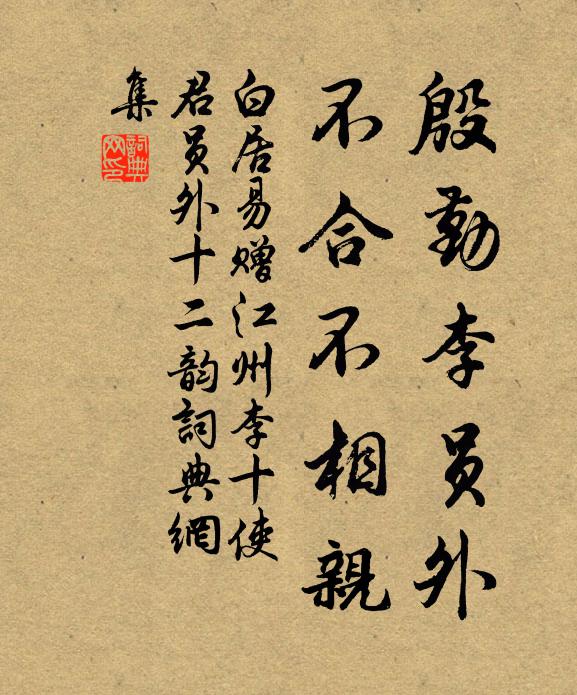 殷勤李员外
不合不相親
白居易赠江州李十使
君员外十二韵詞典網
集
詞典
网印